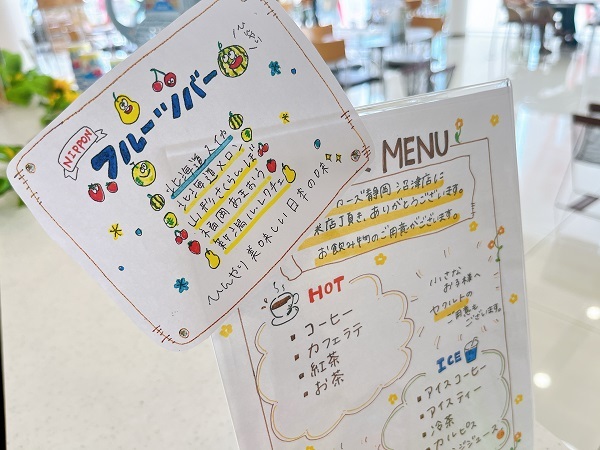 NIPPON
フルーツバー
北海道スイカ
北海道メロン
山形さくらんぼ
福岡あまおう
新潟ル・レクチェ
ひんやり美味しい日本の味
MENU
ローズ静岡 沼津店に
来店頂き、ありがとうございます。
お飲み物のご用意がございます。
HOT
・コーヒー
・カフェラテ
・紅茶
・お茶
小さな
お子様へ
ヤクルトの
ご用意も
ございます。
ICE
・アイスコーヒー
・アイスティー
・冷茶
・カルピス
ンジジュース